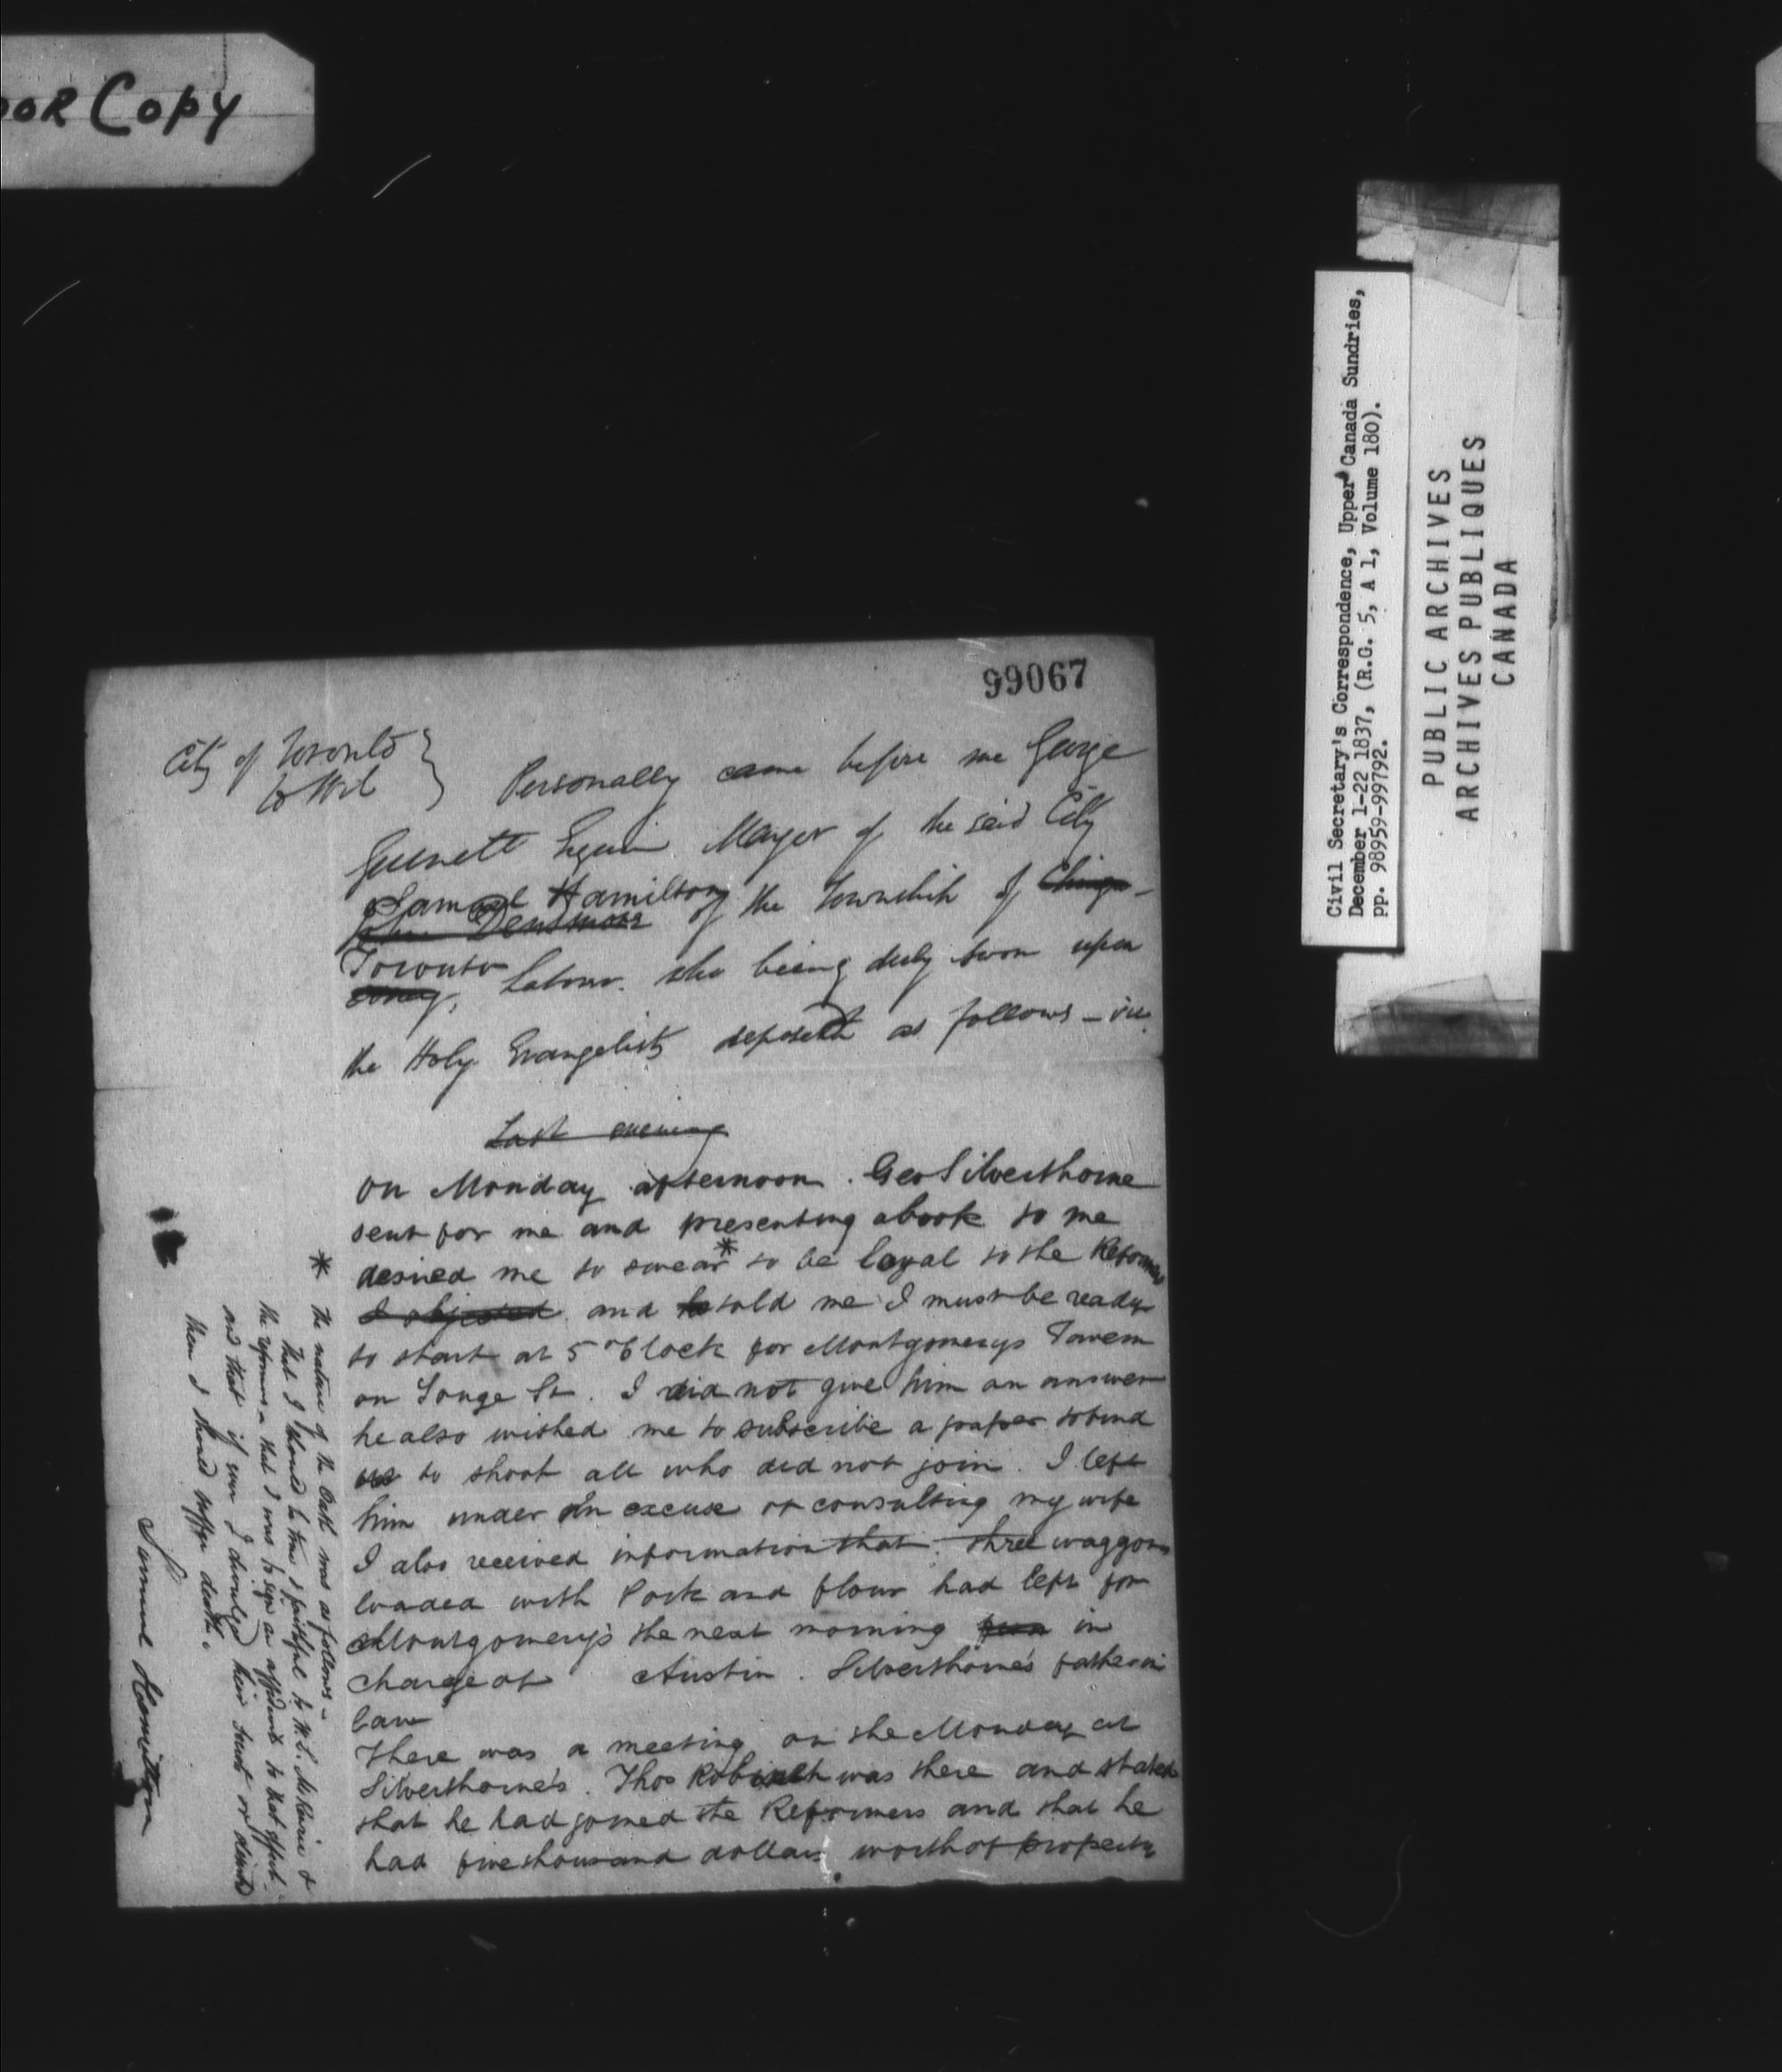 OOR Copy
Civil Secretary's Correspondence, Upper Canada Sundries,
December 1-22 1837, (R.G. 5, A 1, Volume 180).
pp. 98959-99792.
PUBLIC ARCHIVES
ARCHIVES PUBLIQUES
CANADA
99067
City of Toronto }
to Wit
Personally came before me George
Gurnett Esquire Mayor of the said City
Samuel Hamilton of the Township of Chinga-
John Densmore
Toronto
cousy, Labour. who being duly sworn upon
the Holy Evangelists deposeth as follows - viz.
Last evening
On Monday afternoon. Geo Silverthorne
sent for me and presenting a book to me
desired me to swear * to be loyal to the Reformers
I objected and he told me I must be ready
to start at 5 o'Clock for Montgomerys Tavern
on Yonge St. I did not give him an answer
he also wished me to subscribe a paper to bind
us to shoot all who did not join. I left
him under an excuse of consulting my wife
I also received information that three waggons
loaded with Pork and flour had left for
Montgomery's the next morning in
charge of Austin. Silverthorne's father in
law
There was a meeting on the Monday at
Silverthorne's. Thos was there and stated
that he had joined the Reformers and that he
had five thousand dollars worth of property
* The nature of the Oath was as follows -
That I should be true & faithful to W. L. McKenzie &
the reformers - that I was to sign an affidavit to that effect -
and that if ever I divulged their secret or
then I should suffer death.
Samuel Hamilton